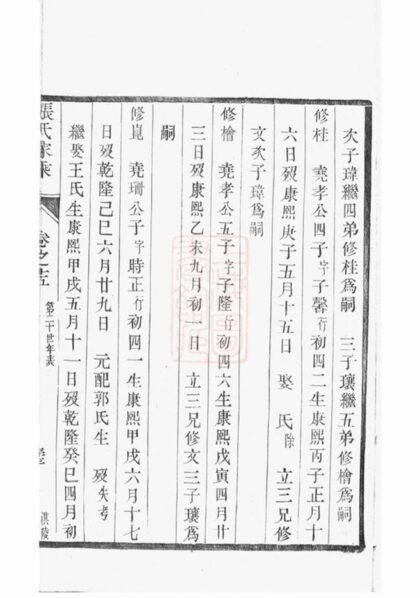 次子瑋繼四弟修桂為嗣　三子瓌繼五弟修檜為嗣
修桂　堯孝公四子字子馨行初四二生康熙丙子正月十
六日歿康熙庚子五月十五日　娶　氏除　立三兄修
文次子瑋為嗣
修檜　堯孝公五子字子隆行初四六生康熙戊寅四月廿
三日歿康熙乙未九月初一日　立三兄修文三子瓌為
嗣
修崑　堯珊公子字時正行初四一生康熙甲戌六月十七
日歿乾隆己巳六月廿九日　元配郭氏生　歿失考
繼娶王氏生康熙甲戌五月十一日歿乾隆癸巳四月初
張氏家乘　卷之五　第二十世年表　淇陵